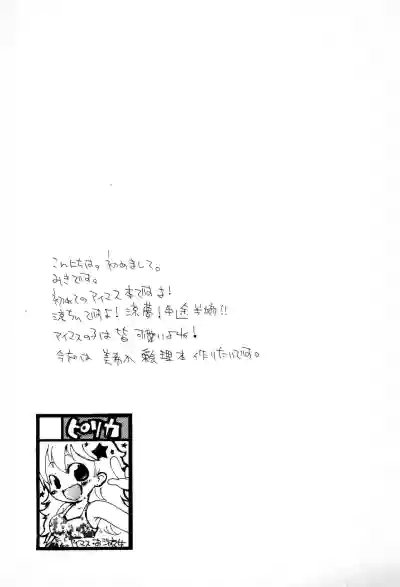 こんにちは。初めまして。
みきです。
初めてのアイマス本ですよ!
涼ちんですよ!涼夢!中途半端!!
アイマスの子は皆可愛いよね!
今度は美希本 雪理本 作りたいです。
ピリカ
アイマス